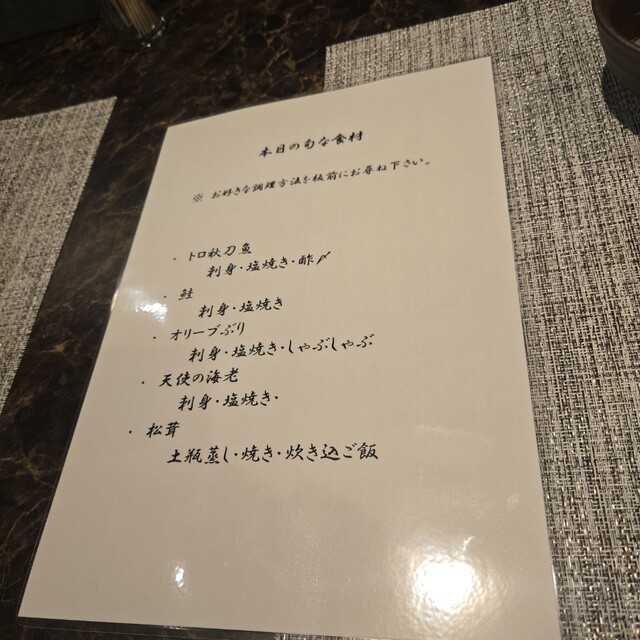 本日の旬な食材
※ お好きな調理方法を板前にお尋ね下さい。
・トロ秋刀魚
刺身・塩焼き・酢〆
・鮭
刺身・塩焼き
・オリーブぶり
刺身・塩焼き・しゃぶしゃぶ
・天使の海老
刺身・塩焼き・
・松茸
土瓶蒸し・焼き・炊き込ご飯